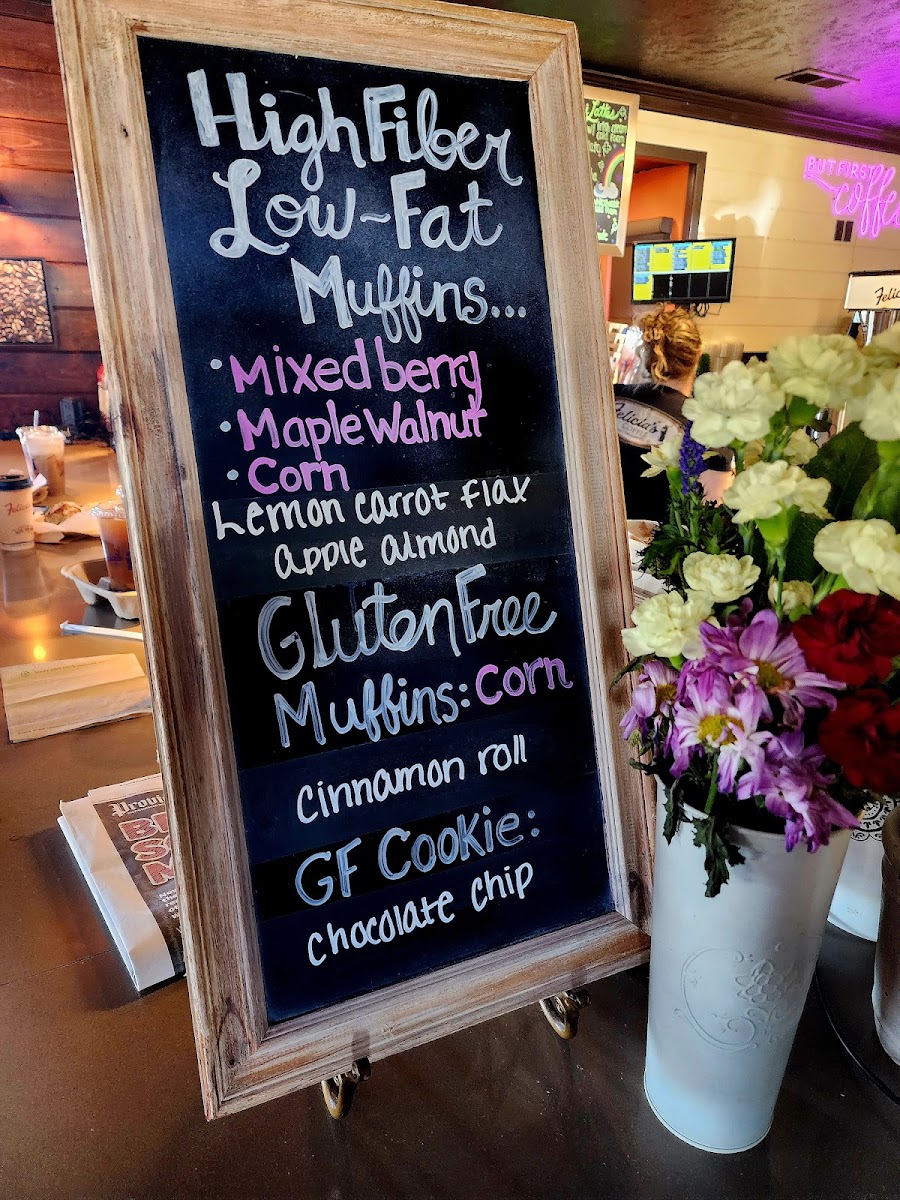 High Fiber
Low-Fat
Muffins...
• Mixed berry
• Maple Walnut
• Corn
Lemon carrot flax
apple almond
Gluten Free
Muffins: Corn
cinnamon roll
GF Cookie:
chocolate chip
BUT FIRST
coffee
Felicia's
Lattes